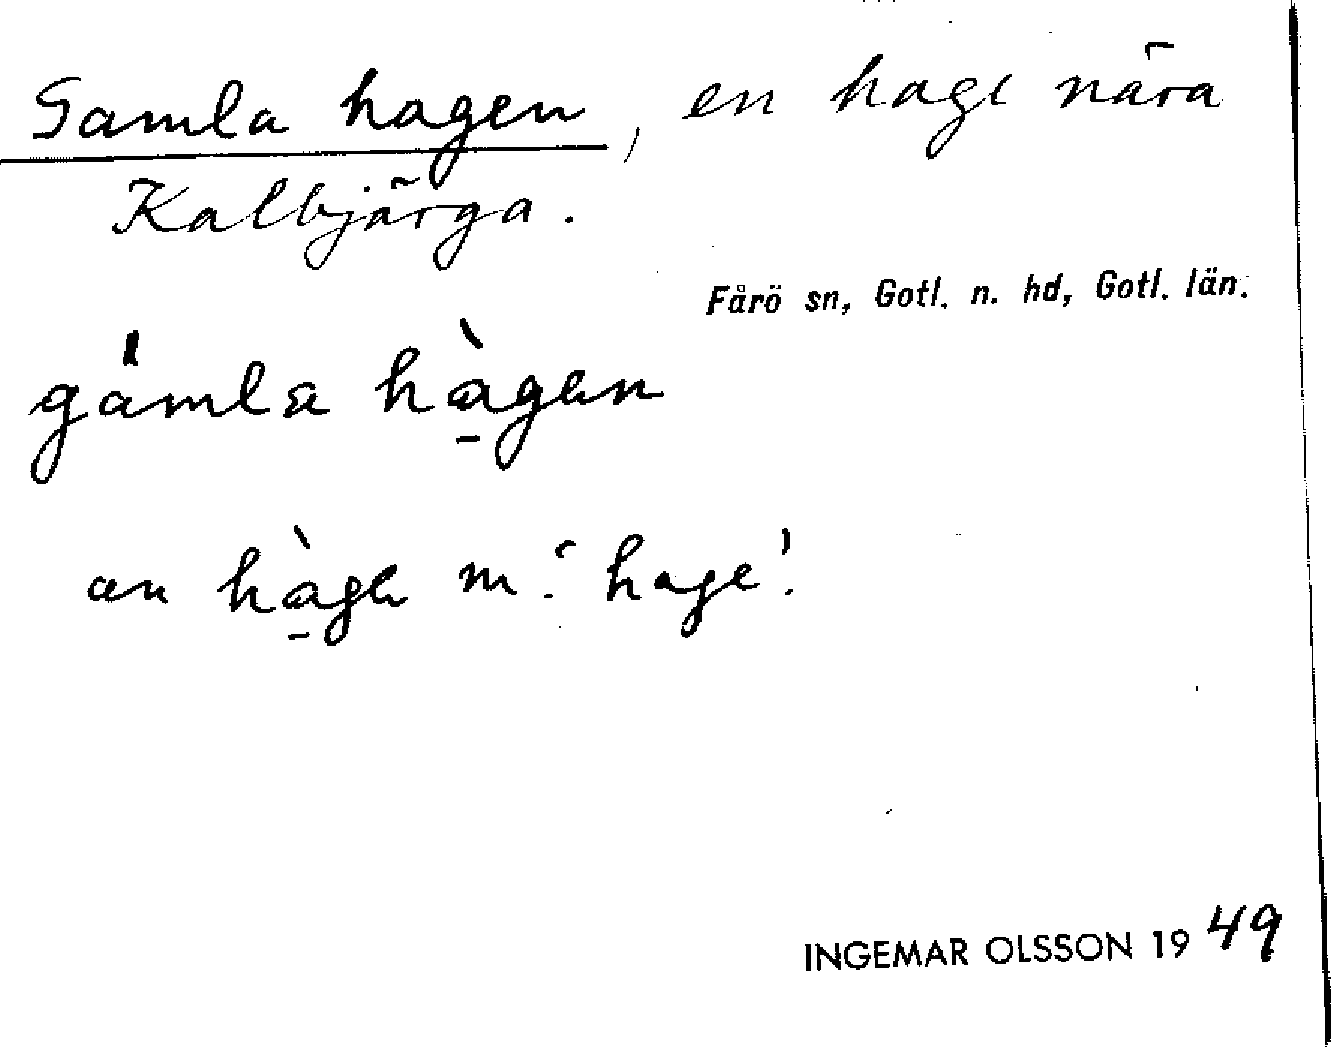 Gamla hagen, en hage nära
Kalbjärga.
Fårö sn, Gotl. n. hd, Gotl. län.
gámla hàgen
an hàge m. 'hage'.
INGEMAR OLSSON 1949